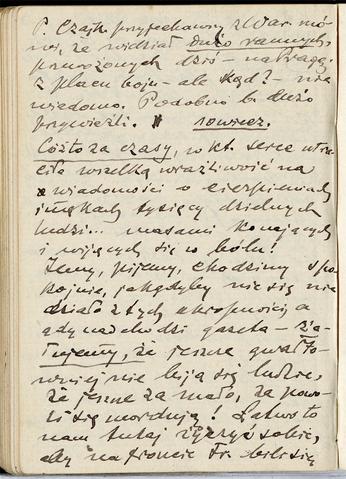 P. Czajk. przyjechawszy z War. mó-
wi, że widział dużo rannych,
przywożonych dziś – na Pragę.
Z placu boju – ale kąd? – nie
wiadomo. Podobno b. dużo
przywieźli.
Cóż to za czasy, w kt. serce utra-
ciło wszelką wrażliwość na
wiadomości o cierpieniach
i mękach tysięcy dzielnych
ludzi... masami konających
i wijących się w bólu!
Jemy, pijemy, chodzimy spo-
kojnie, jakgdyby nic się nie
działo z tych okropności, a
gdy nadchodzi gazeta – ża-
łujemy, że jeszcze gwałto-
wniej nie biją się ludzie,
że jeszcze za mało, za powo-
li się mordują! Łatwo to
nam tutaj życzyć sobie,
aby na froncie fr. bili się